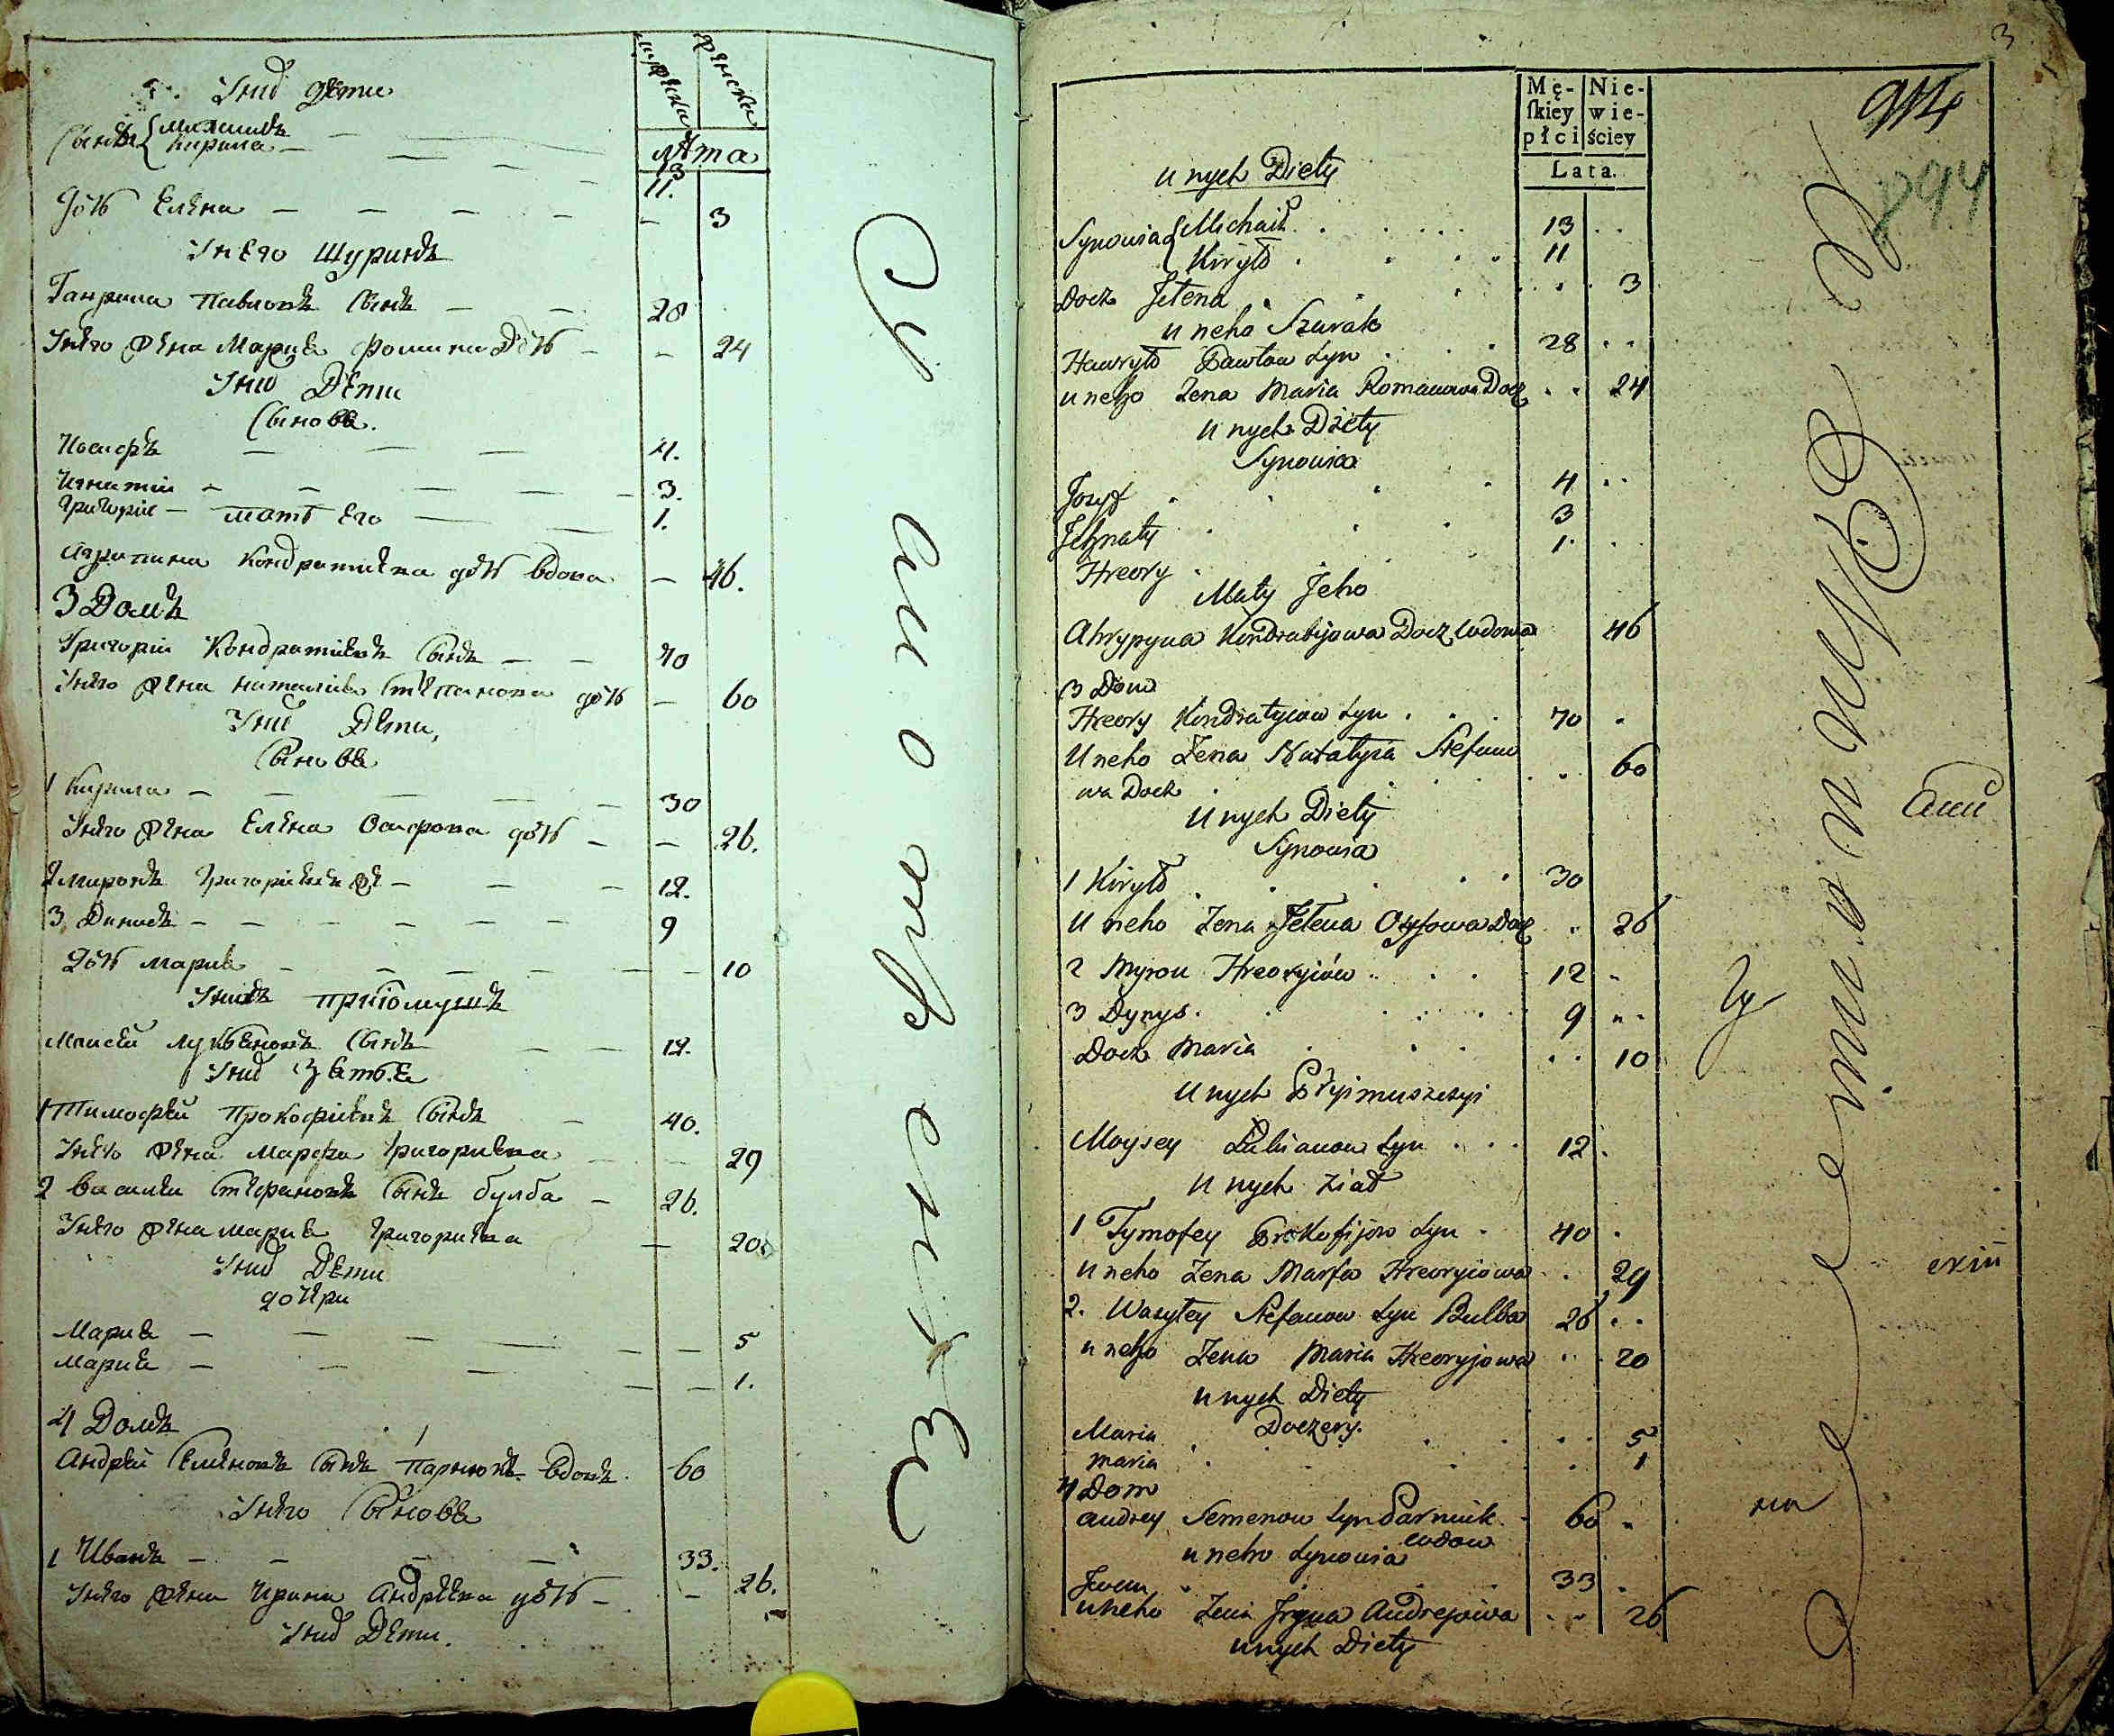 мужеска
женска
Лѣта
У них Дѣти
Сыны Михаилъ 13
Кирила 11.
Дочь Елена 3
У него Шуринъ
Гаврила Павловъ сынъ 28
У него жена Мария Романова дочь 24
У них Дѣти
Сыновя.
Иосифъ 4.
Игнатий 3.
Григорий 1.
Мать Его
Агрипина Кондратиева дочь вдова 46.
3 Домъ
Григорий Кондратиевъ сынъ 70
У него жена Наталия Степанова дочь 60
У них Дѣти,
Сыновя
1 Кирила 30
У него жена Елена Осифова дочь 26.
2 Миронъ Григориевъ 12.
3 Динисъ 9
Дочь Мария 10
У нихъ
Моисей Лукьяновъ сынъ 12.
У них Зятья
1 Тимофей Прокофиевъ сынъ 40.
У него жена Марфа Григориева 29
2 Василий Стефановъ сынъ булба 26.
У него жена Мария Григориева 20
У них Дѣти
дочери
Мария 5
Мария 1.
4 Домъ
Андрей Семеновъ сынъ вдовъ 60
У него Сыновя
1 Иванъ 33.
У него жена Ирина Андреева дочь 26.
У них Дѣти.
3
914
894
Mę-
ſkiey
płci
Nie-
wie-
ściey
Lata.
u nych Diety
Synowia Michaił 13
Kiryło 11
Docz Jełena 3
u neho Szurak
Hawryło Pawłow Syn 28
u neho Żena Maria Romanowa Docz 24
u nych Diety
Synowia
Jozyf 4
Jehnaty 3
Hreory 1
Maty Jeho
Ahrypyna Kondratyjowa Docz wdowa 46
3 Dom
Hreory Kondratyiow Syn 70
U neho Żena Natałyia Stefano
wa Docz 60
U nych Diety
Synowia
1 Kiryło 30
U neho Żena Jełena Osyfowa Docz 26
2 Myron Hreoryiów 12
3 Dynys 9
Docz Maria 10
U nych Pryimuszczyi
Moysey Łukianow Syn 12
U nych ziat
1 Tymofey Prokofijow Syn 40
U neho Żena Marfa Hreoryiowa 29
2. Wasyley Stefanow Syn Bulba 26
u neho Żena Maria Hreoryjowa 20
u nych Diety
Doczery.
Maria 5
Maria 1
4 Dom
Andrey Semenow Syn Parniuk wdow 60
u neho Synowia
Jwan 33
u neho Żena Jryna Andrejowa 26
u nych Diety